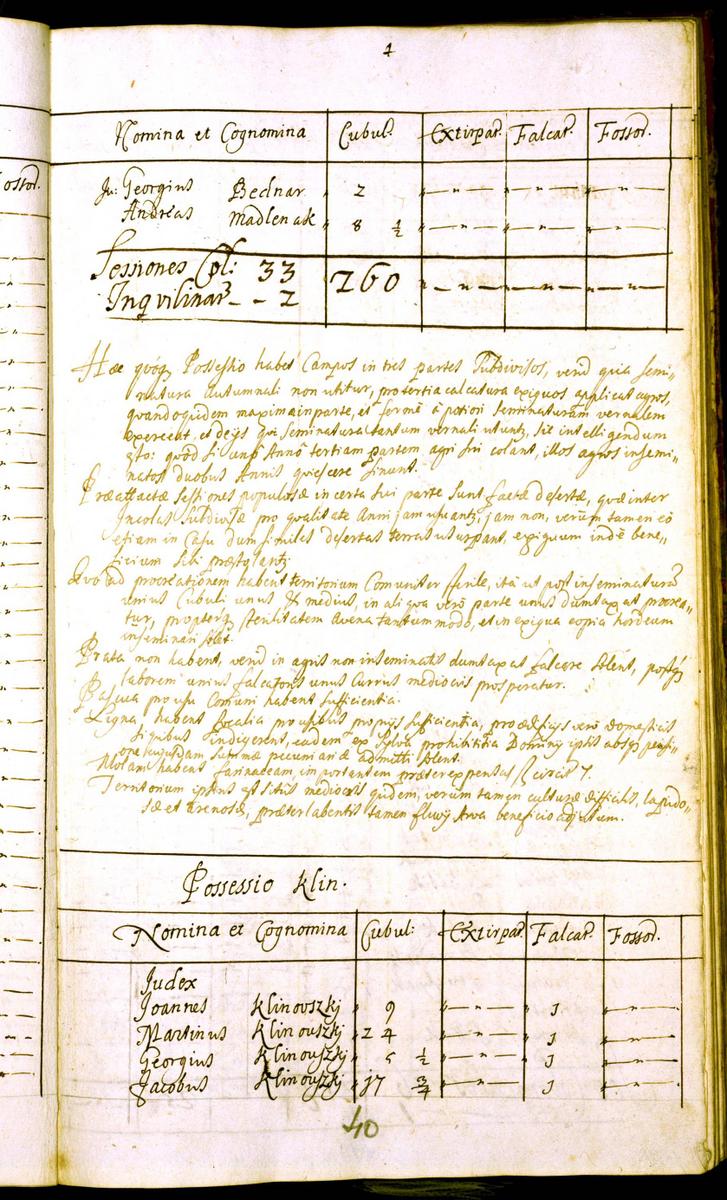 4
ostod.
Nomina et Cognomina Cubul: Extirpat. Falcat. Fossod.
Ju: Georgius Bednar 2
Andreas Madlenak 8 1/2
Sessiones Col: 33 260
Inqvilinar - - 2
Hæc qvóq3 Possessio habet Campos in tres partes Subdivisos, verū qvia semi=
natura Autumnali non utitur, pro tertia calcatura exiguos applicat agros,
qvandoqvidem maxima in parte, et fermè à potiori Seminaturam vernalem
exerceat, et de ijs qvi Seminatura tantum vernali utunt, sic intelligendum
qvòd si uno Anno tertiam partem agri sui colant, illos agros insemi=
natos duobus Annis qviescere sinunt.
Præattactæ Sessiones populosæ in certa sui parte sunt factæ desertæ, qvæ inter
Incolas Subdivisæ pro qvalitate Anni jam usuant, jam non, verùm tamen eò
etiam in Casu dum similes desertas terras usurpant, exiguum indè bene=
ficium sibi præstolant.
Qvo ad procreationem habent territorium Comuniter sterile, ità ut post inseminaturā
unius Cubuli unus et medius, in aliqva verò parte unus dumtaxat procrea=
tur, propterq3 sterilitatem Avena tantummodo, et in exigua copia hordeum
inseminari solet.
Prata non habent, verū in agris non inseminatis dumtaxat falcare solent, postq3
laborem unius falcatoris unus Currus mediocris prosperatur.
Pascua pro usu Comuni habent sufficientia.
Ligna habent focalia pro usibus proprijs sufficientia, pro ædificijs verò domesticis
lignibus indigerent, eadem ex Sylva prohibititia Dominij ipsis absq3 pensi=
one cujusdam summæ pecuniariæ admitti solent.
Molam habent farinaceam, importantem præter expensas fl circit 7.
Territorium ipsius est situs mediocris qvidem, verùm tamen culturæ difficilis, lapido=
sæ et arenosæ, præterlabentis tamen fluvij Arva beneficio adjutum.
Possessio Klin.
Nomina et Cognomina Cubul: Extirpat. Falcat. Fossod.
Judex
Joannes Klinovszkj 9 1
Martinus Klinovszkj 24 1
Georgius Klinovszkj 5 1/2 1
Jacobus Klinovszkj 17 3/4 1
40